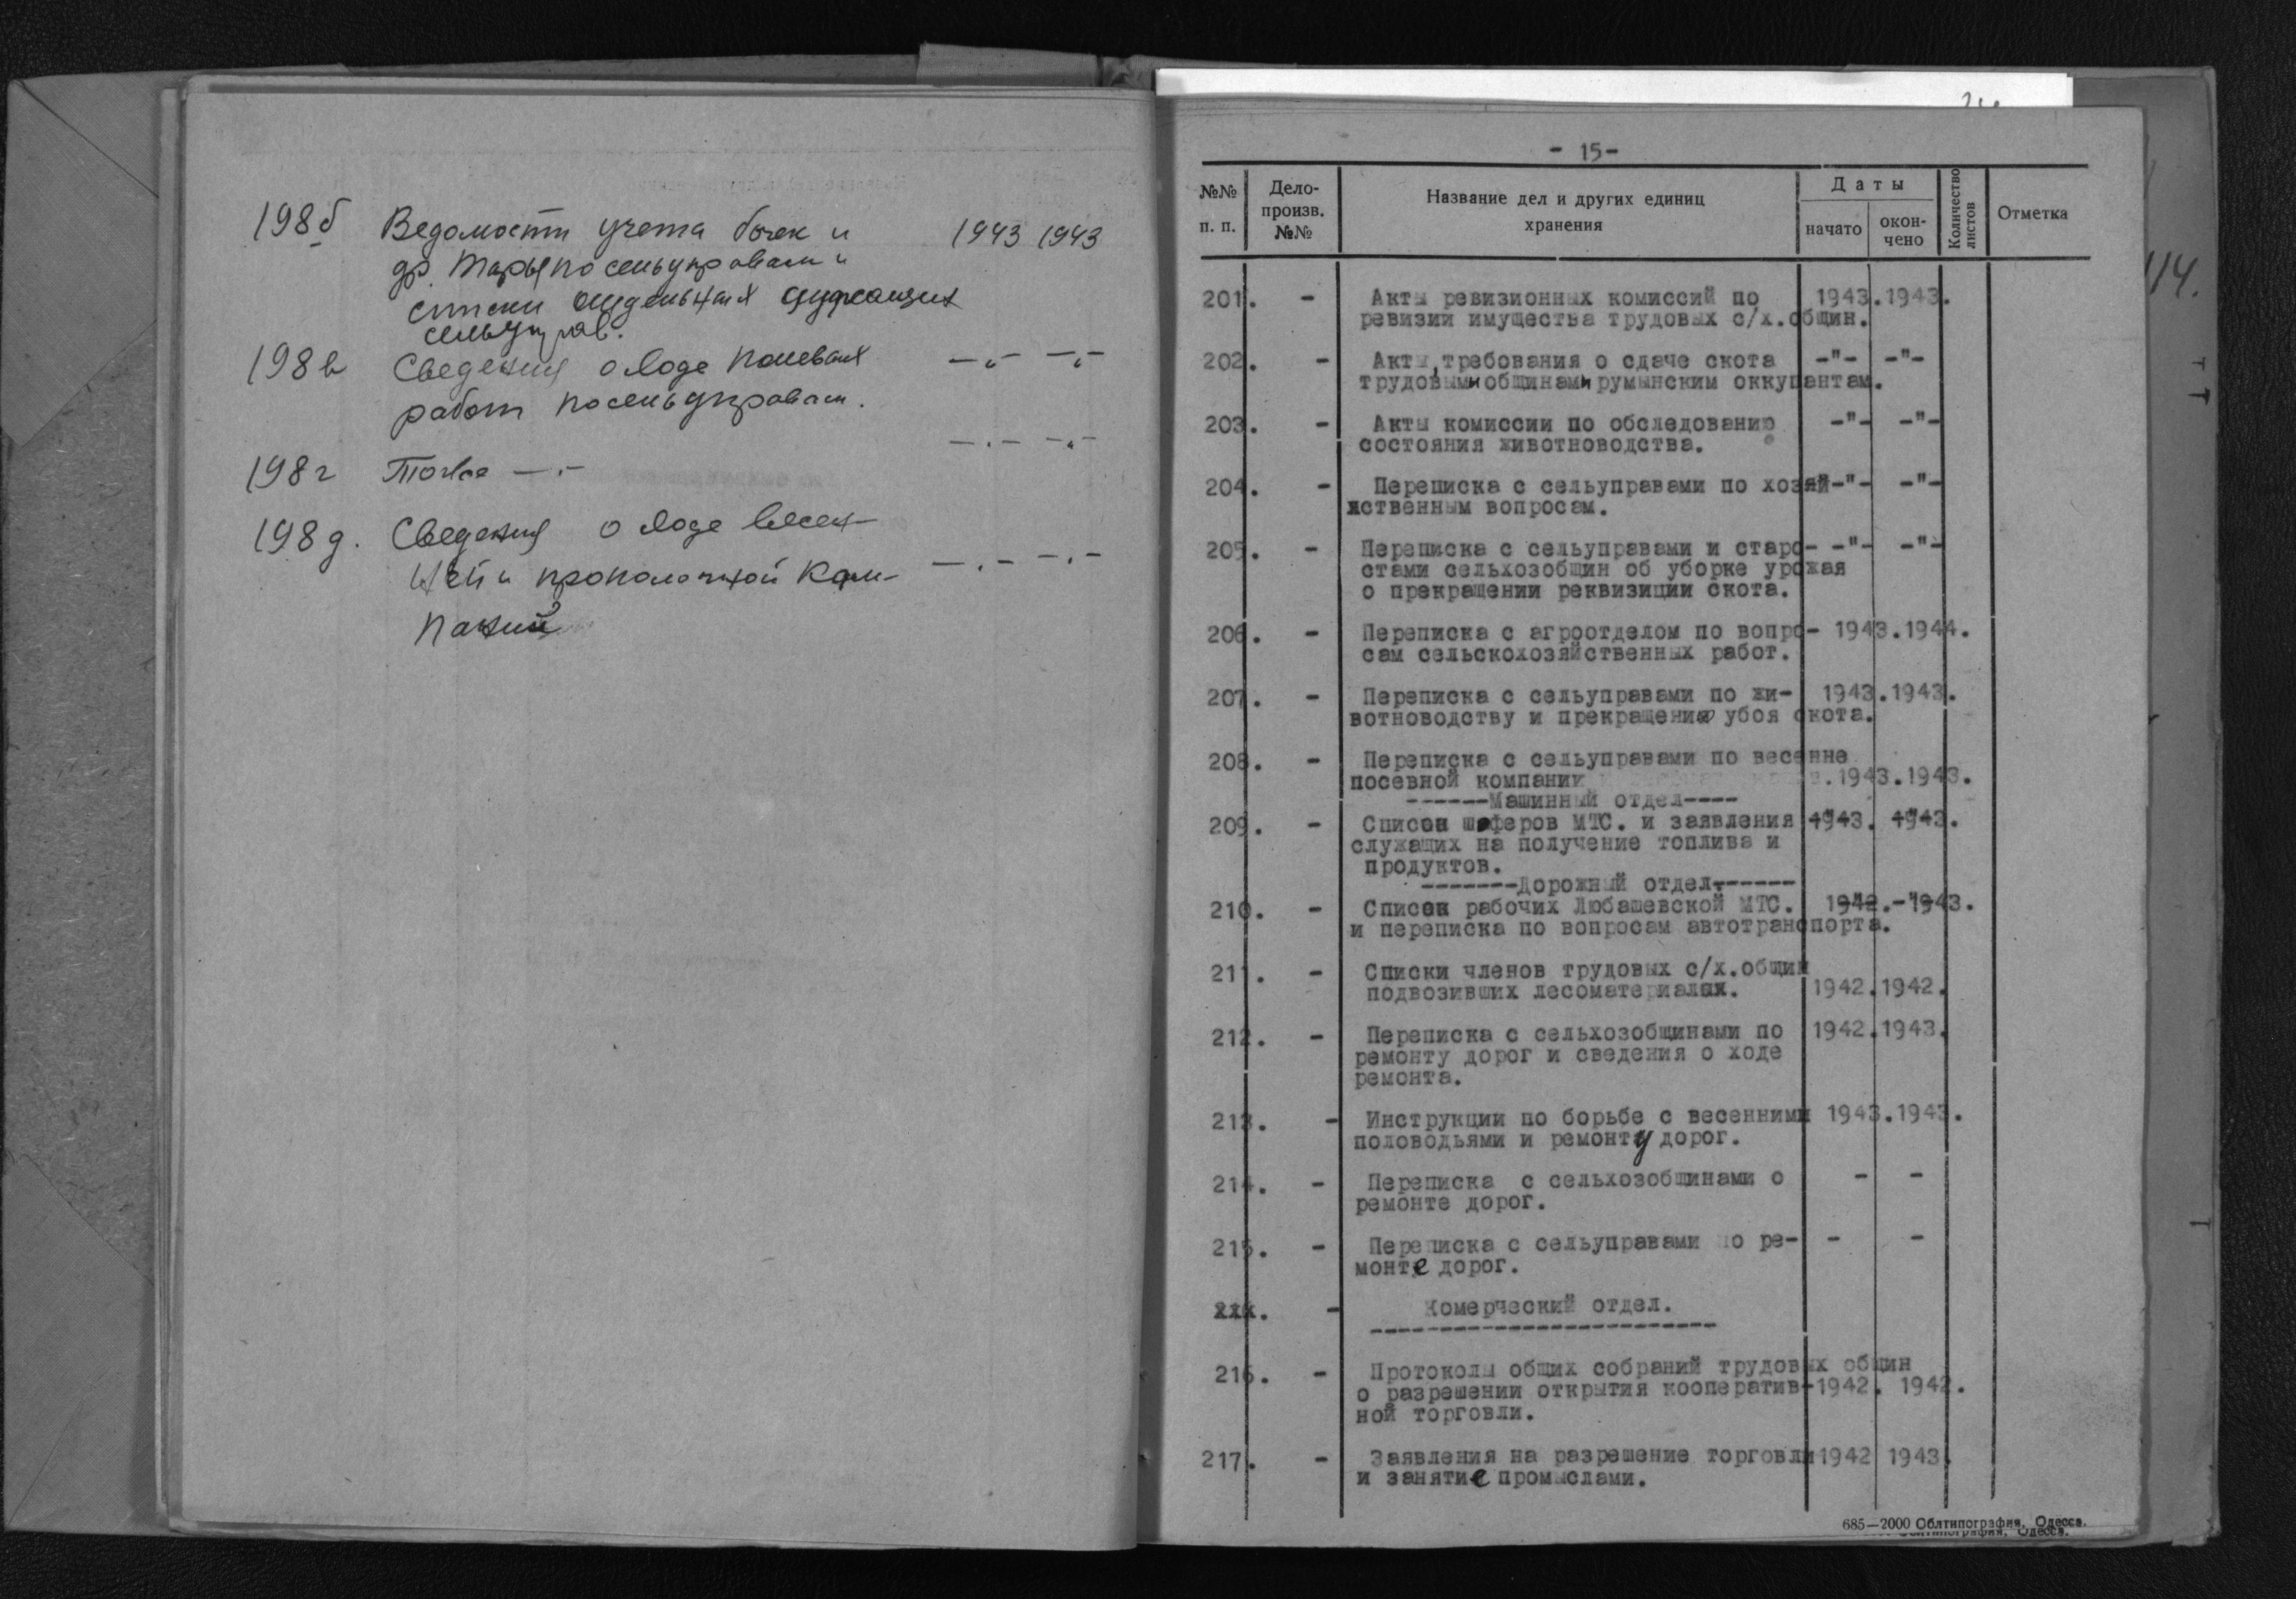 198б Ведомости учета бочек и 1943 1943
др. тары по сельуправам и
списки отдельных служащих
сельуправ.
198в Сведения о ходе полевых —"— —"—
работ по сельуправам.
—"— —"—
198г То же —"—
198д. Сведения о ходе весен-
ней и прополочной кам- —"— —"—
паний
- 15-
№№ п. п.
Дело-произв. №№
Название дел и других единиц хранения
Даты
начато
окон-чено
Количество листов
Отметка
114.
201. - Акты ревизионных комиссий по 1943.1943.
ревизии имущества трудовых с/х.общин.
202. - Акты,требования о сдаче скота -"- -"-
трудовыми общинами румынским оккупантам.
203. - Акты комиссии по обследованию -"- -"-
состояния животноводства.
204. - Переписка с сельуправами по хозяй-"- -"-
ственным вопросам.
205. - Переписка с сельуправами и старо- -"- -"-
стами сельхозобщин об уборке урожая
о прекращении реквизиции скота.
206. - Переписка с агроотделом по вопро- 1943.1944.
сам сельскохозяйственных работ.
207. - Переписка с сельуправами по жи- 1943.1943.
вотноводству и прекращения убоя скота.
208. - Переписка с сельуправами по весенне
посевной компании .1943.1943.
------Машинный отдел----
209. - Список шоферов МТС. и заявления 1943. 1943.
служащих на получение топлива и
продуктов.
-------Дорожный отдел.------
210. - Список рабочих Любашевской МТС. 1942.-1943.
и переписка по вопросам автотранспорта.
211. - Списки членов трудовых с/х.общин
подвозивших лесоматериалы. 1942.1942.
212. - Переписка с сельхозобщинами по 1942.1943.
ремонту дорог и сведения о ходе
ремонта.
213. - Инструкции по борьбе с весенними 1943.1943.
половодьями и ремонту дорог.
214. - Переписка с сельхозобщинами о - -
ремонте дорог.
215. - Переписка с сельуправами о ре- - -
монте дорог.
ххх. - Комерческий отдел.
-------------------------
216. - Протоколы общих собраний трудовых общин
о разрешении открытия кооператив-1942. 1942.
ной торговли.
217. - Заявления на разрешение торговли 1942 1943.
и занятие промыслами.
685—2000 Облтипография, Одесса.